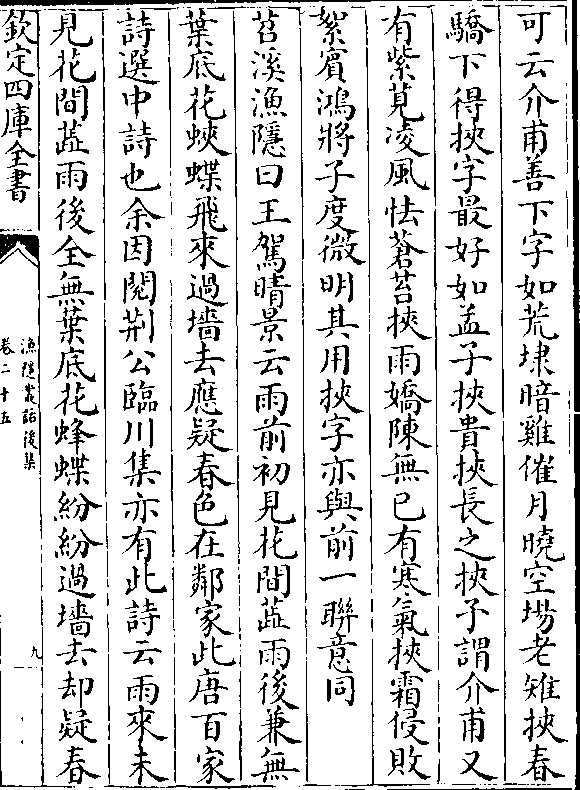 可云介甫善下字如荒埭暗雞催月曉空塲老雉挾春
驕下得挾字最好如孟子挾貴挾長之挾子謂介甫又
有紫莧凌風怯蒼苔挾雨嬌陳無已有寒氣挾霜侵敗
絮賔鴻將子度微明其用挾字亦與前一聯意同
苕溪漁隱曰王駕晴景云雨前初見花間蘂雨後兼無
葉底花蛺蝶飛來過墻去應疑春色在鄰家此唐百家
詩選中詩也余因閱荆公臨川集亦有此詩云雨來未
見花間蘂雨後全無葉底花蜂蝶紛紛過墻去却疑春
欽定四庫全書
漁隱叢話後集
卷二十五
九